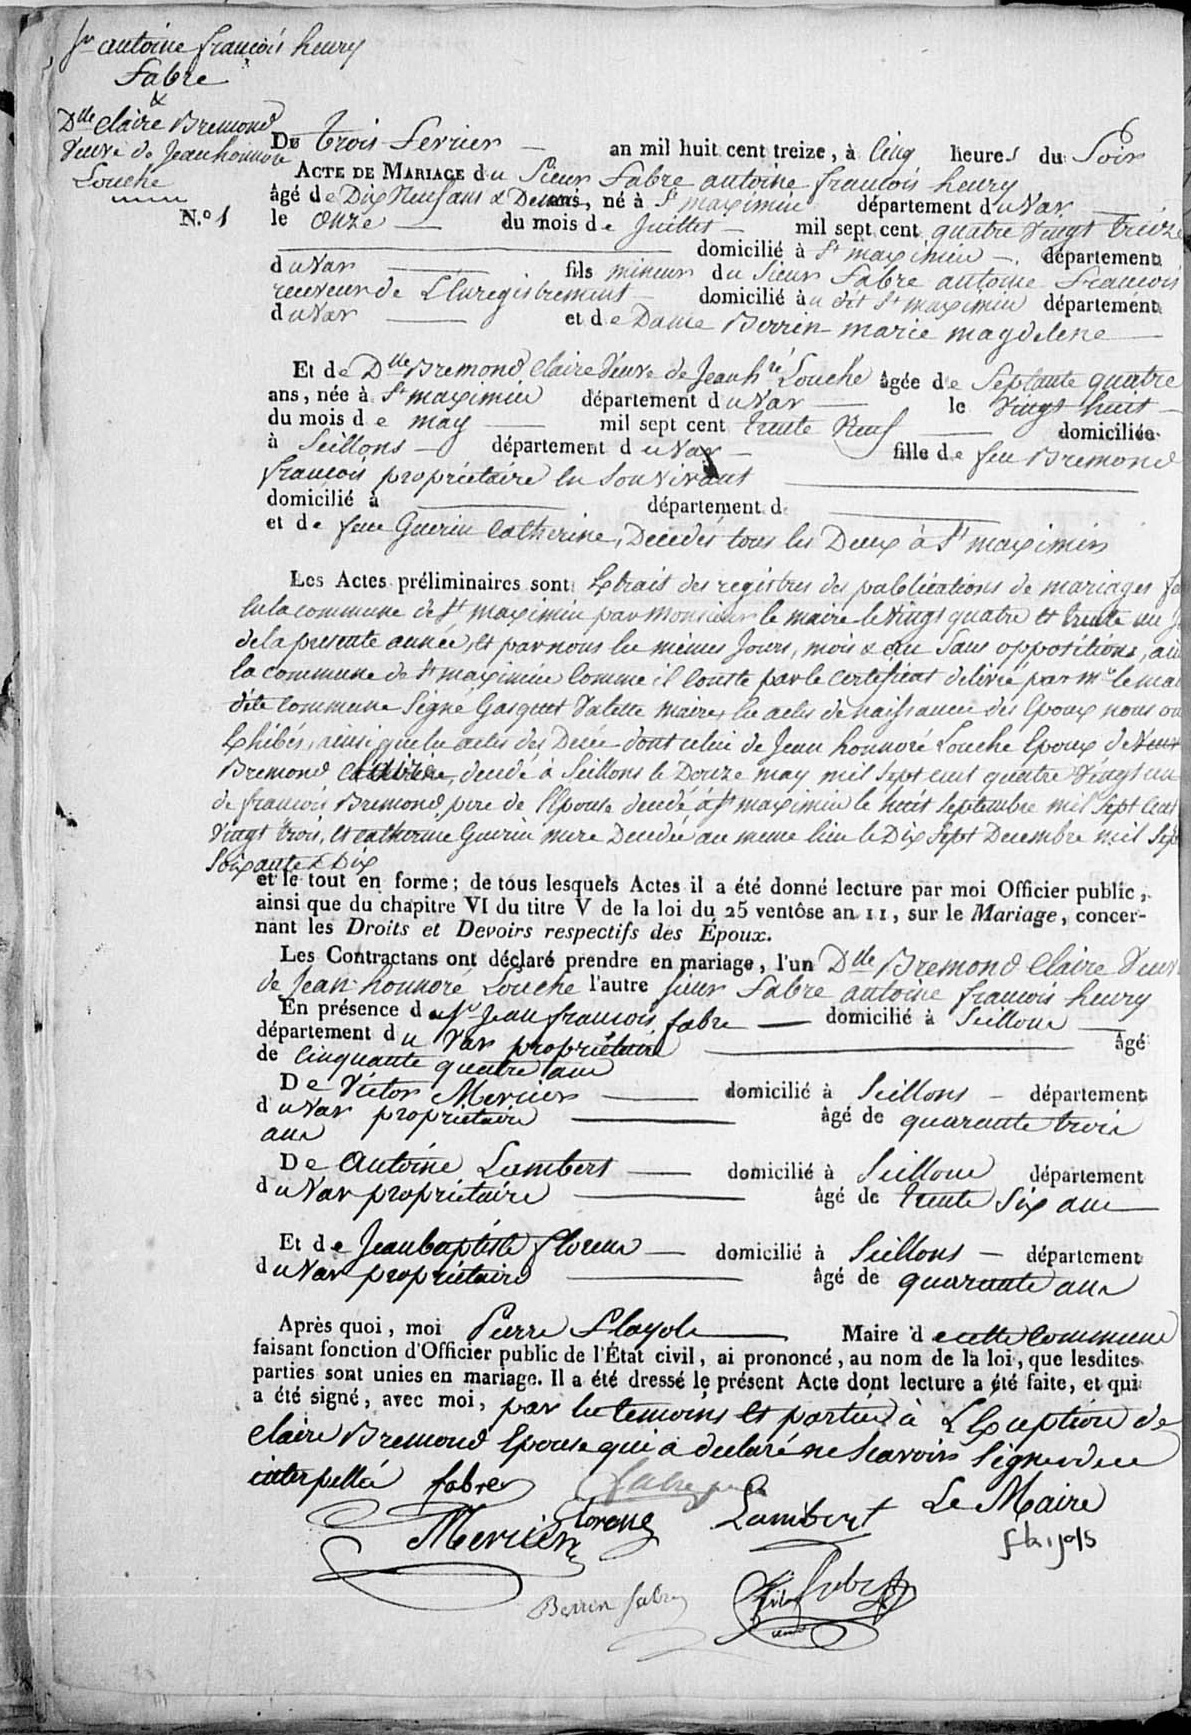 Sr antoine françois heury
Fabre
&
Dlle Claire Bremond
Veuve de Jean honnoré
Louche
N.o 1
Du trois fevrier an mil huit cent treize, à Cinq heures du Soir
ACTE DE MARIAGE du Sieur Fabre antoine francois heury
âgé de Dix Neuf ans & Demis, né à St maximin département du Var
le Onze du mois de Juillet mil sept cent quatre Vingt treize
domicilié à St maximin département
du Var fils mineur du Sieur Fabre antoine Francois
receveur de L'Enregistrement domicilié au dit St maximin département
du Var et de Dame Berrin marie magdelene
Et de Dlle Bremond Claire Veuve de Jean hré Louche âgée de Septante quatre
ans, née à St maximin département du Var le Vingt huit
du mois de may mil sept cent trente Neuf domiciliée
à Seillons département du Var fille de feu Bremond
francois propriétaire en Son Vivant
domicilié à département d
et de feue Guerin Catherine, Decedés tous les Deux à St maximin
Les Actes préliminaires sont Extrait des registres des publications de mariages
en la commune de St maximin par Monsieur le maire le Vingt quatre et trente un
de la presente année, et par nous les mêmes Jours, mois & an Sans oppositions,
la commune de St maximin Comme il Conste par le Certificat délivré par Mr le
dite Commune Signé Gasquet Valette maire, les actes de naissance des Epoux nous
Exhibés, ainsi que les actes des Décés dont celui de Jean honnoré Louche Epoux de
Bremond decedé à Seillons le Douze may mil Sept cent quatre Vingt un
de francois Bremond pere de l'Epouse decedé, à St maximin le huit Septembre mil Sept Cent
Vingt trois, et Catherine Guerin mere Decedée au meme lieu le Dix Sept Decembre mil
Soixante & Dix
et le tout en forme; de tous lesquels Actes il a été donné lecture par moi Officier public,
ainsi que du chapitre VI du titre V de la loi du 25 ventôse an 11, sur le Mariage, concer-
nant les Droits et Devoirs respectifs des Epoux.
Les Contractans ont déclaré prendre en mariage, l'un Dlle Bremond Claire
de Jean honnoré Louche l'autre Sieur Fabre antoine francois heury
En présence de Sr Jean francois fabre domicilié à Seillons
département du Var propriétaire âgé
de Cinquante quatre ans
De Victor Mercier domicilié à Seillons département
du Var propriétaire âgé de quarante trois
ans
De Antoine Lambert domicilié à Seillons département
du Var propriétaire âgé de trente Six ans
Et de Jean baptiste florens domicilié à Seillons département
du Var propriétaire âgé de quarante ans
Après quoi, moi Pierre Flayols Maire de cette Commune
faisant fonction d'Officier public de l'État civil, ai prononcé, au nom de la loi, que lesdites
parties sont unies en mariage. Il a été dressé le présent Acte dont lecture a été faite, et qui
a été signé, avec moi, par les temoins et parties à L'Exception de
Claire Bremond Epouse qui a declaré ne Scavoir Signer de ce
interpellée fabre Le Maire
Mercier florens Lambert flayols
Berrin fabre fabre